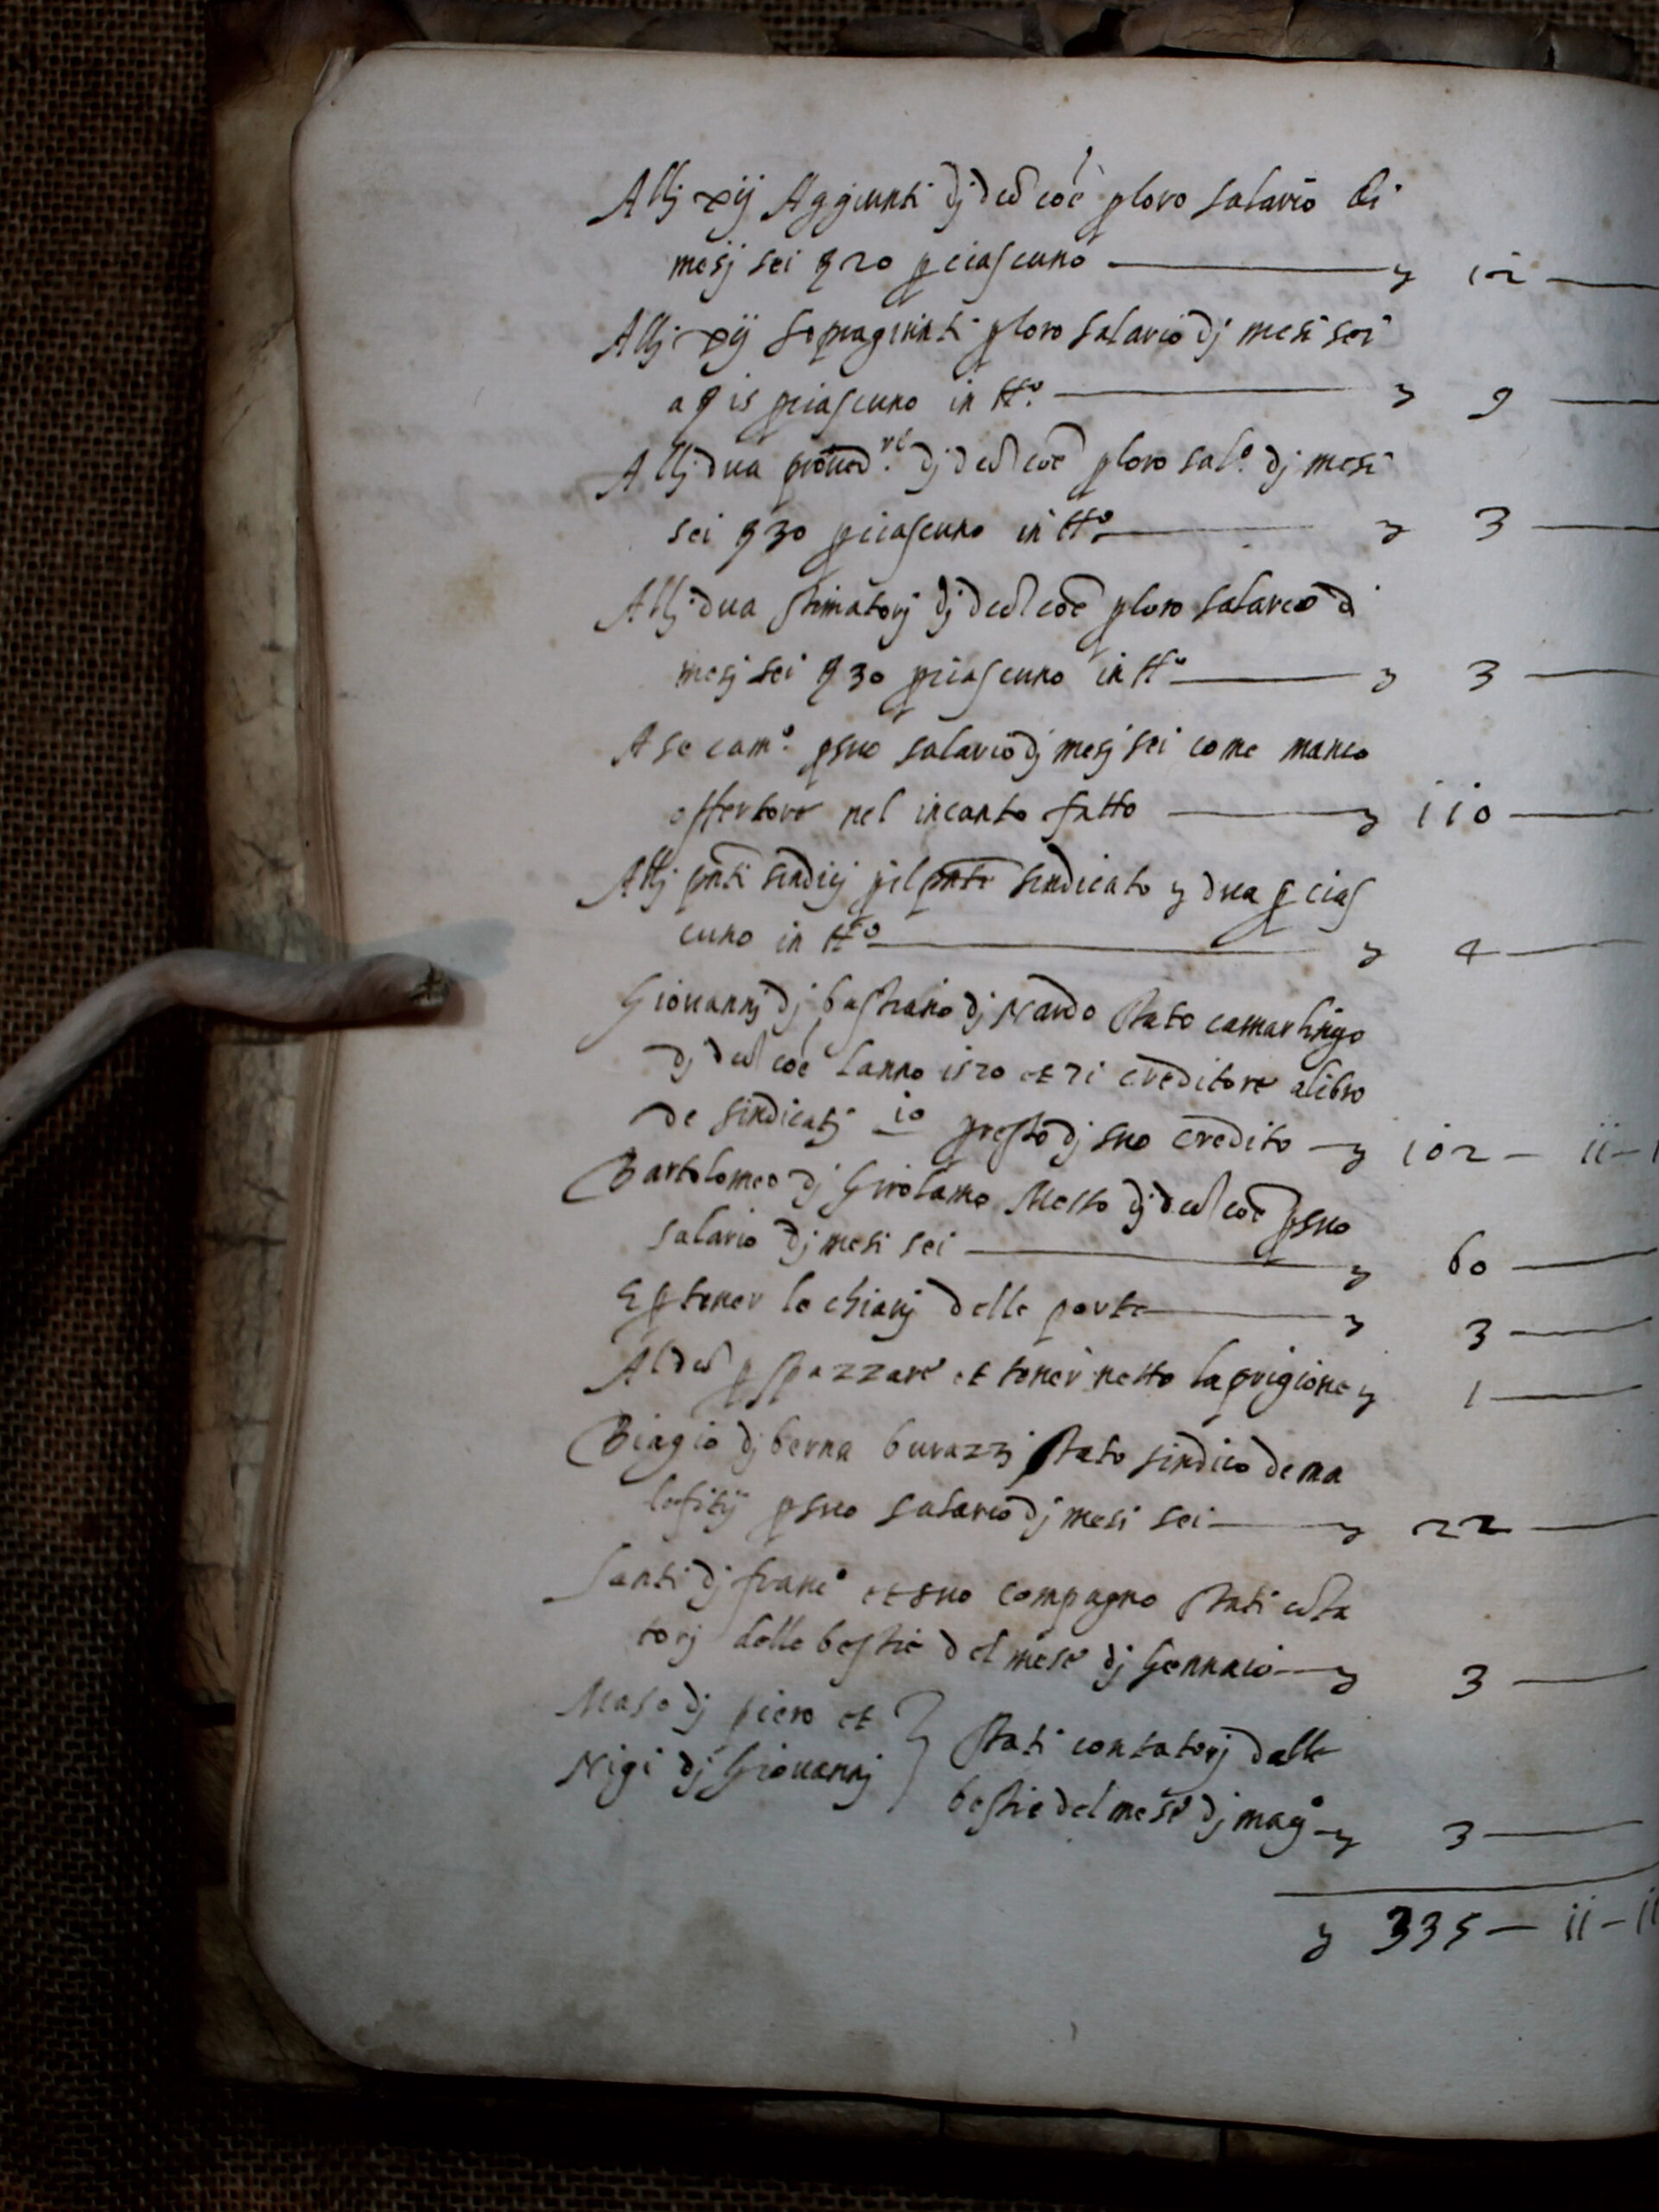 Allj xij Aggiunti dj dco coe p loro salario di
mesj sei ꝗ 20 p ciascuno — y 12 —
Allj xij sopragiunti p loro salario dj mesi sei
a ꝗ 15 p ciascuno in tto — y 9 —
Allj dua proued.ri dj dco coe p loro sal.o dj mesi
sei ꝗ 30 p ciascuno in tto — y 3 —
Allj dua stimatorj dj dco coe p loro salario di
mesj sei ꝗ 30 p ciascuno in tto — y 3 —
A se cam.o p suo salario dj mesj sei come manco
offertore nel incanto fatto — y 110 —
Allj pnti sindicj p il pnte sindicato y dua p cias
cuno in tto — y 4 —
Giouannj dj bastiano dj Nardo stato camarlingo
dj dco coe lanno 1570 et 71 creditore a libro
de sindicatj 10 p resto dj suo credito — y 102 — ii —
Bartolomeo dj Girolamo Messo dj dco coe p suo
salario dj mesi sei — y 60 —
E p tener le chiauj delle porte — y 3 —
Al dco p spazzare et tener netto la prigione y 1 —
Biagio dj berna burazzj stato sindico de ma
lefitij p suo salario dj mesi sei — y 22 —
Santi dj franc.o et suo compagno stati cota
torj delle bestie del mese dj Gennaio — y 3 —
Maso dj piero et
Nigi dj Giouannj } stati contatorj delle
bestie del mese dj mag.o — y 3 —
y 335 — ii — ii